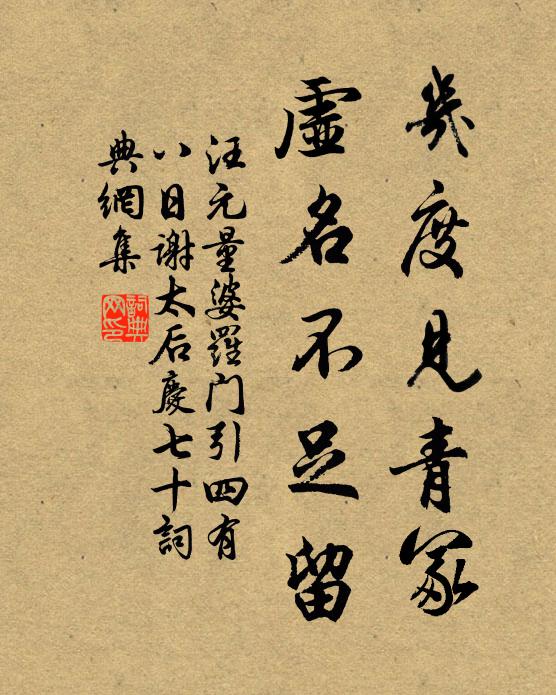 幾度見青冢
虛名不足留
汪元量婆羅門引四有
八日謝太后慶七十詞
典網集
詞典
网印